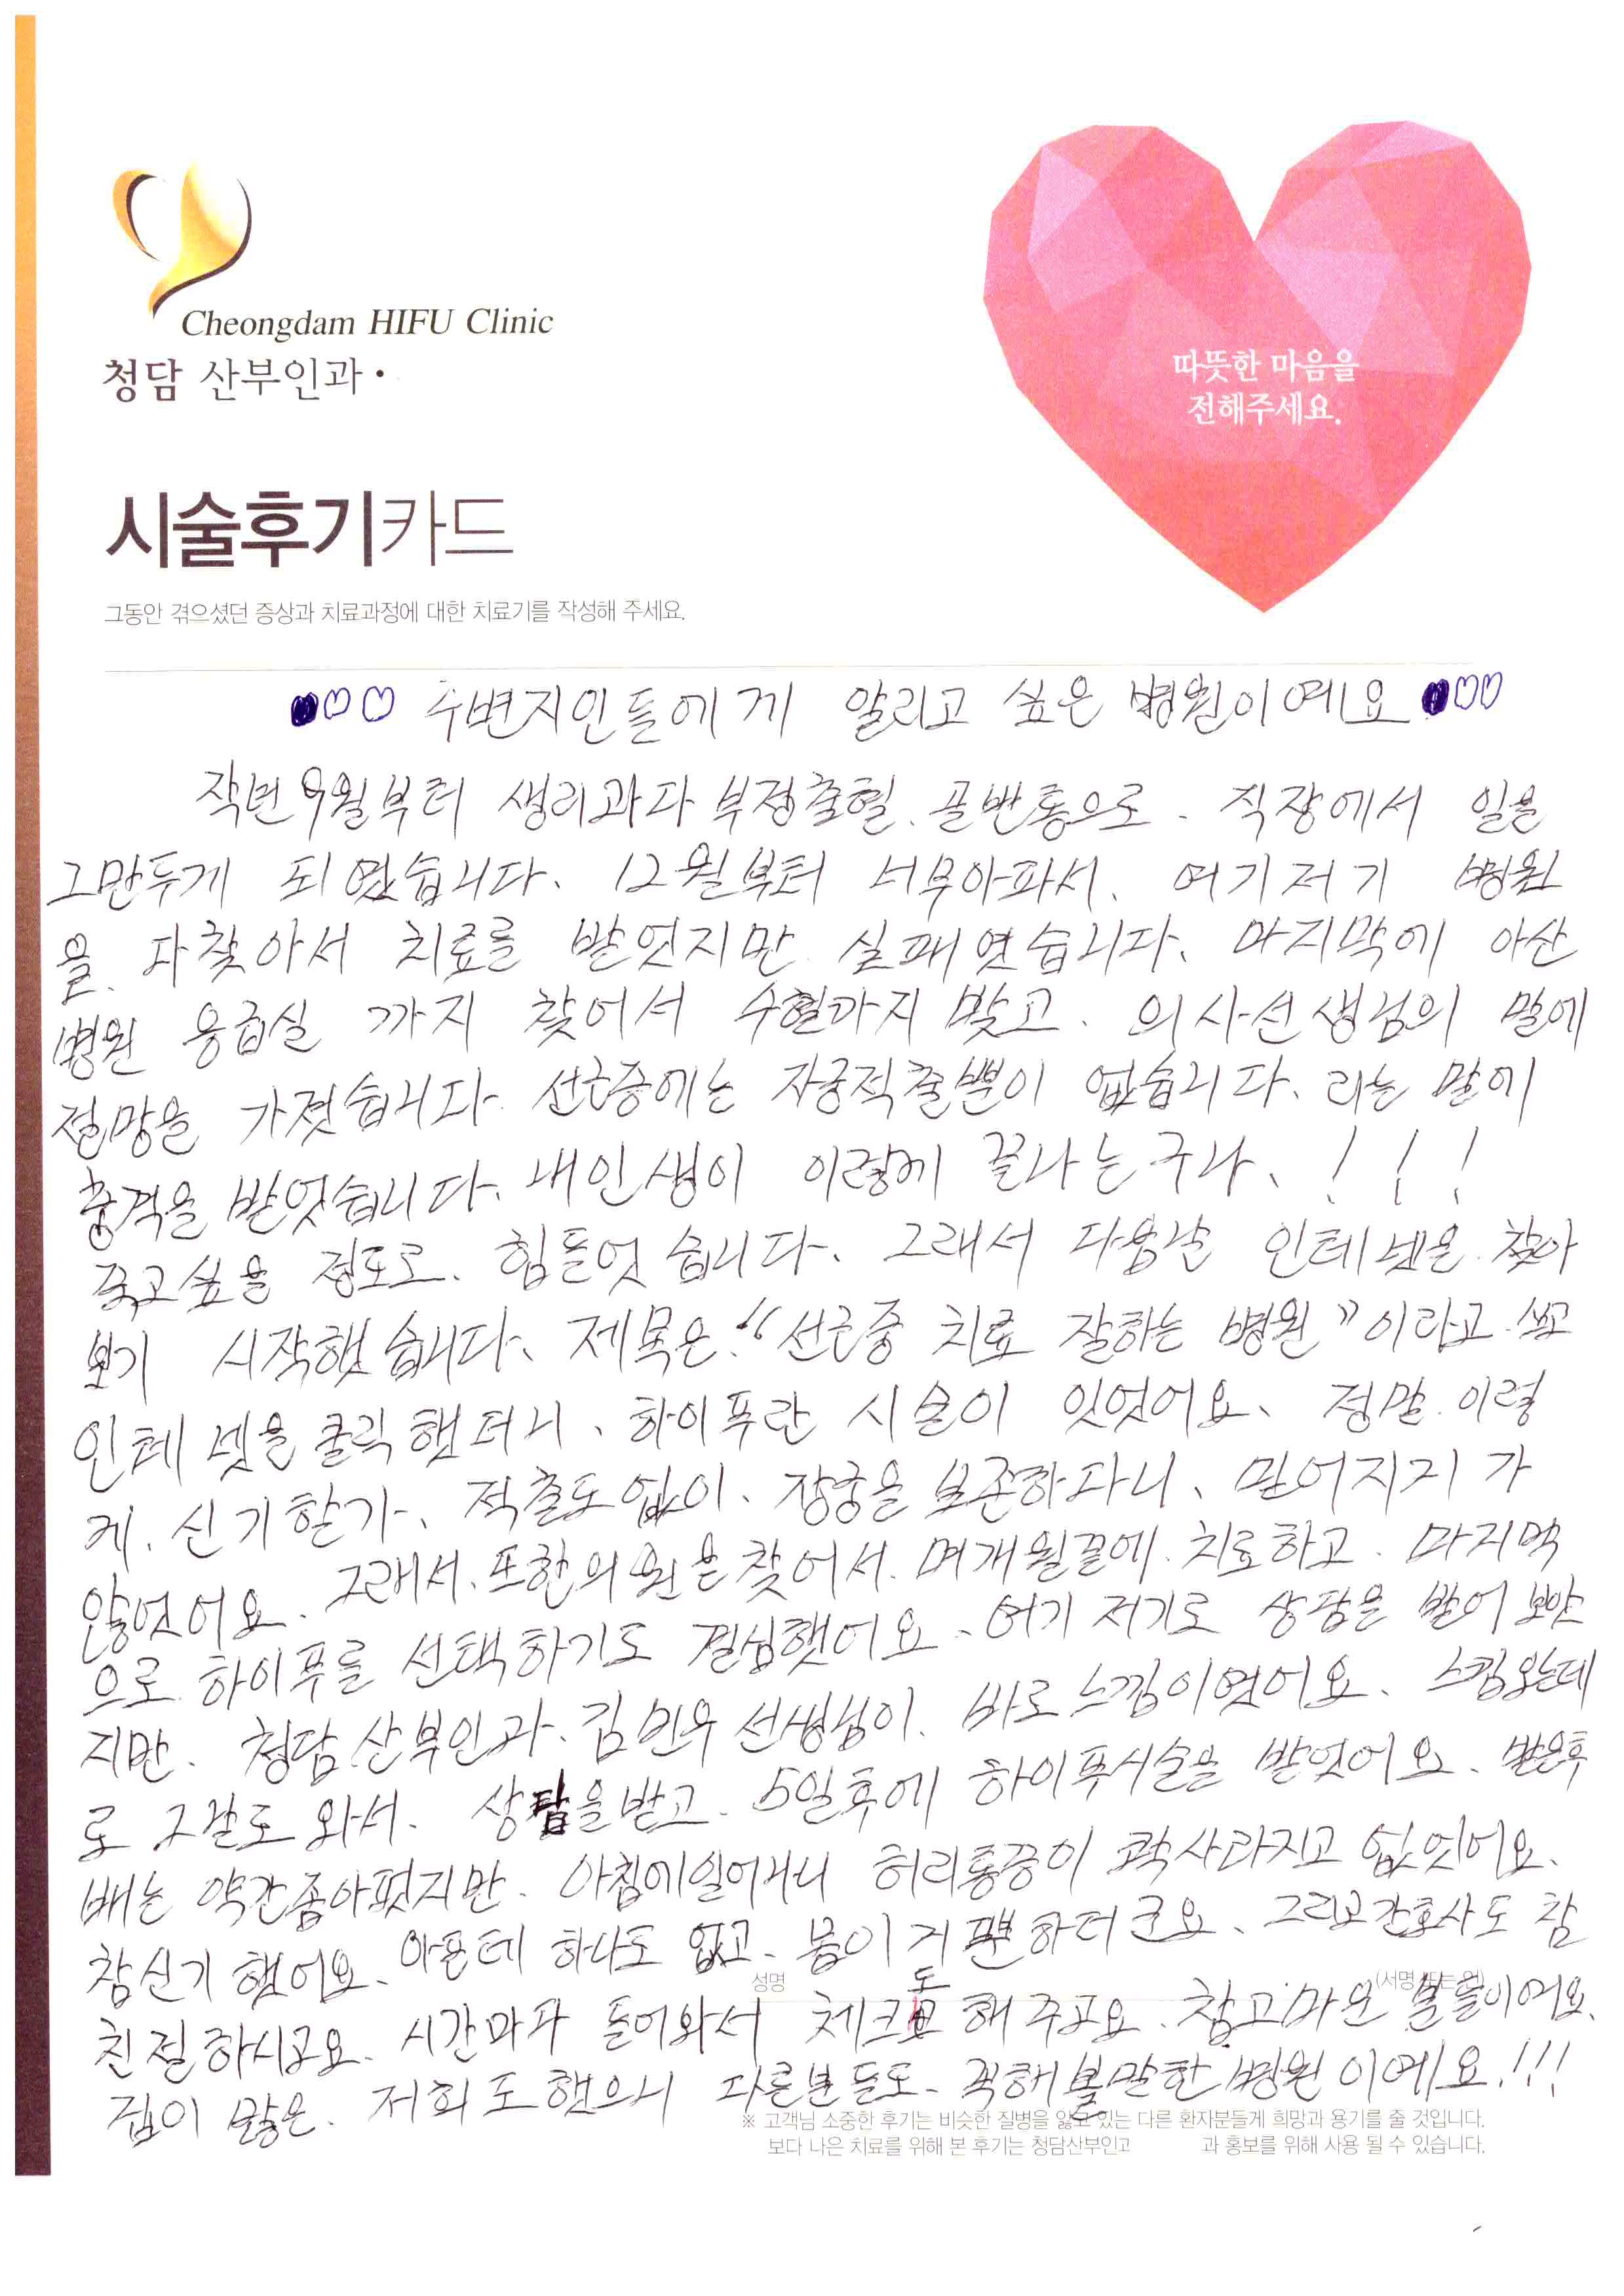 Cheongdam HIFU Clinic
청담 산부인과
따뜻한 마음을
전해주세요.
시술후기카드
그동안 겪으셨던 증상과 치료과정에 대한 치료기를 작성해 주세요.
주변지인들에게 알리고 싶은 병원이예요
작년 9월부터 생리과다 부정출혈. 골반통으로. 직장에서 일을
그만두게 되였습니다. 12월부터 너무아파서. 여기저기 병원
을. 다찾아서 치료를 받엇지만 실패였습니다. 마지막에 아산
병원 응급실 까지 찾어서 수혈까지 맞고. 의사선생님의 말에
절망을 가졋습니다. 선근증에는 자궁적출뿐이 없습니다. 라는 말에
충격을 받엇습니다. 내인생이 이렇게 끝나는구나. ! ! !
죽고싶을 정도로. 힘들엇습니다. 그래서 다음날 인테넷을 찾아
보기 시작했습니다. 제목은. "선근증 치료 잘하는 병원" 이라고. 쓰고
인테넷을 클릭했더니. 하이푸란 시술이 잇엇어요. 정말. 이렇
게. 신기한가. 적출도없이. 장궁을 보존하다니. 믿어지지가
않엇어요. 그래서. 또한의원을 찾어서. 며개월끝에. 치료하고. 마지막
으로. 하이푸를 선택하기도 결심했어요. 여기 저기로 상담을 받어 보앗
지만. 청담.산부인과. 김민우 선생님이. 바로 느낌이였어요. 느낌오는데
로 그길로 와서. 상담을받고. 5일후에 하이푸시술을 받엇어요. 받은후
배는 약간좀아펏지만. 아침에일어나니 허리통증이 콱사라지고 없엇어요.
참신기했어요. 아픈데 하나도 없고. 몸이 거뿐하더군요. 그리고간호사도 참
성명
친절하시고요. 시간마다 들어와서 체크도 해주고요. 참고마운 분들이어요.
겁이 많은. 저희도 했으니 다른분들도. 꼭해볼만한 병원이예요!!!
※ 고객님 소중한 후기는 비슷한 질병을 앓고 있는 다른 환자분들게 희망과 용기를 줄 것입니다.
보다 나은 치료를 위해 본 후기는 청담산부인과 홍보를 위해 사용 될 수 있습니다.